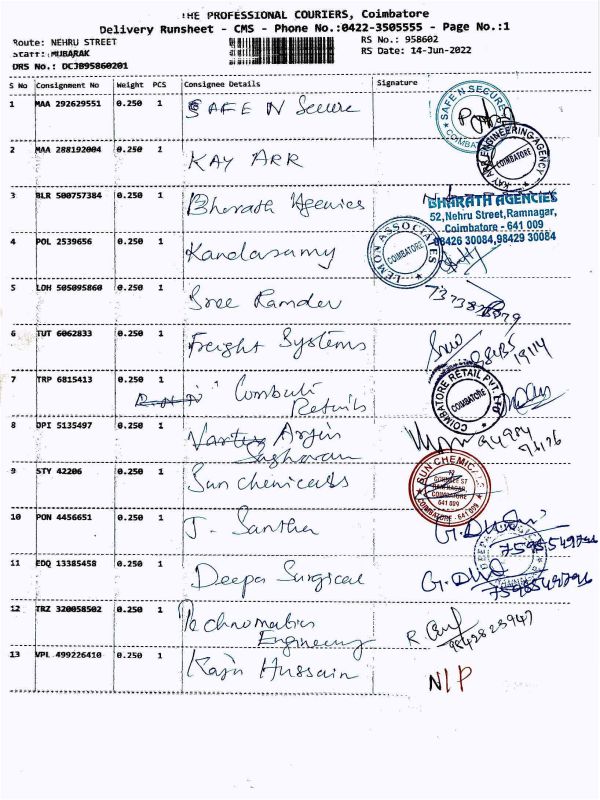 THE PROFESSIONAL COURIERS, Coimbatore
Delivery Runsheet - CMS - Phone No.:0422-3505555 - Page No.:1
Route: NEHRU STREET
RS No.: 958602
Staff: MUBARAK
RS Date: 14-Jun-2022
DRS No.: DCJB95860201
S No Consignment No Weight PCS Consignee Details Signature
1 MAA 292629551 0.250 1 SAFE N Secure
SAFE N SECURE
COIMBATORE
2 MAA 288192004 0.250 1 KAY ARR
KAY ARR ENGINEERING AGENCY
COIMBATORE
3 BLR 500757384 0.250 1 Bharath Agencies
BHARATH AGENCIES
52,Nehru Street,Ramnagar,
Coimbatore - 641 009
98426 30084,98429 30084
4 POL 2539656 0.250 1 Kandasamy
LEMON ASSOCIATES
COIMBATORE
5 LDH 505095860 0.250 1 Sree Ramdev
6 TUT 6062833 0.250 1 Freight Systems
7 TRP 6815413 0.250 1 Combuti
Retails
COIMBATORE RETAIL PVT. LTD
COIMBATORE
8 DPI 5135497 0.250 1 Arjin
9 STY 42206 0.250 1 Sun chemicals
SUN CHEMICALS
RAMNAGAR,
COIMBATORE
641 009
COIMBATORE - 641 009
10 PON 4456651 0.250 1 J. Santha
11 EDQ 13385458 0.250 1 Deepa Surgical
12 TRZ 320058502 0.250 1 Technomatics
Engineering
9842823947
13 VPL 499226410 0.250 1 Kaja Hussain
N/P